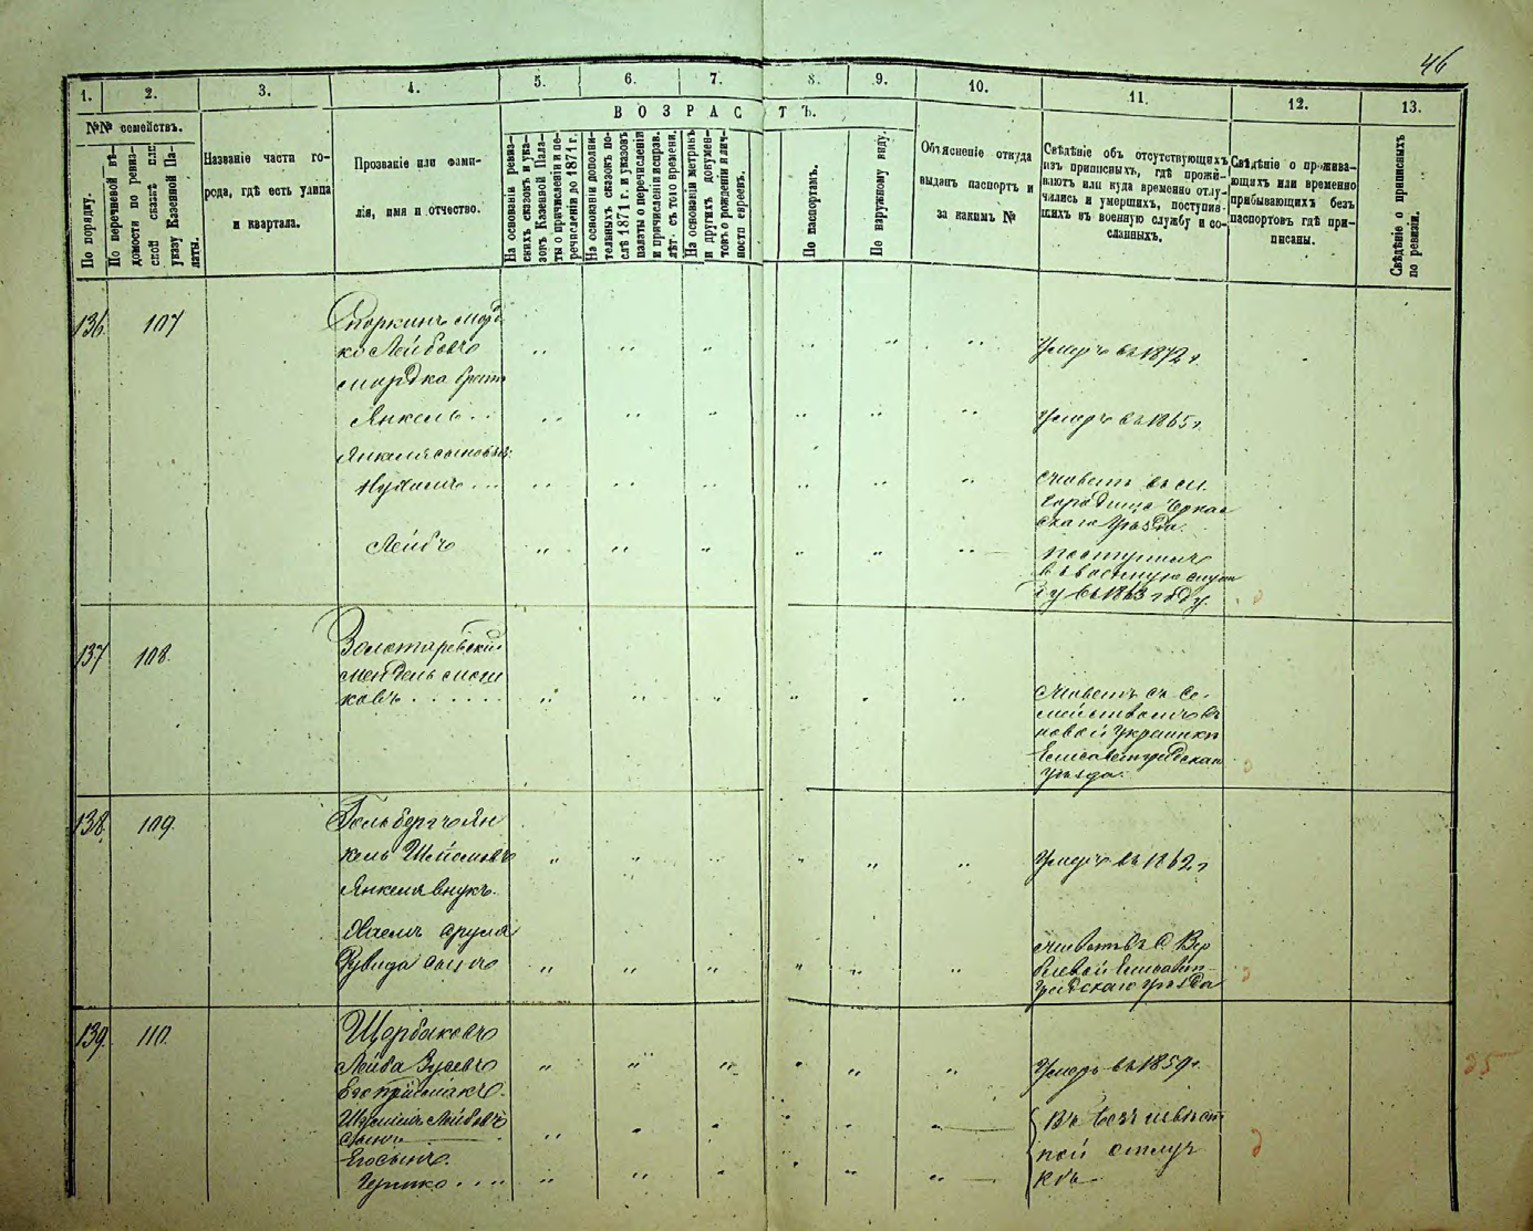 46
1. 2. 3. 4. 5. 6. 7. 8. 9. 10. 11. 12. 13.
№№ семействъ.
По порядку.
По перечневой вѣ-
домости по ревиз-
ской сказкѣ или
указу Казенной Па-
латы.
Названіе части го-
рода, гдѣ есть улица
и квартала.
Прозваніе или фами-
лія, имя и отчество.
ВОЗРАСТЪ.
На основаніи ревиз-
скихъ сказокъ и ука-
зовъ Казенной Пала-
ты о причисленіи и пе-
речисленіи до 1871 г.
На основаніи дополни-
тельныхъ сказокъ по-
слѣ 1871 г. и указовъ
палаты о перечисленіи
и причисленіи исправ.
лѣт. съ того времени.
На основаніи метрикъ
и другихъ докумен-
товъ о рожденіи и лич-
ности евреевъ.
По паспортамъ.
По наружному виду.
Объясненіе откуда
выданъ паспортъ и
за какимъ №
Свѣдѣніе объ отсутствующихъ
изъ приписныхъ, гдѣ прожи-
ваютъ или куда временно отлу-
чились и умершихъ, поступив-
шихъ въ военную службу и со-
сланныхъ.
Свѣдѣніе о прожива-
ющихъ или временно
прибывающихъ безъ
паспортовъ гдѣ при-
писаны.
Свѣдѣніе о приписныхъ
по ревизіи.
136 107
Мордко Лейбовъ Умеръ въ 1872 г.
Мордка братъ
Янкель Умеръ въ 1865 г.
Янкеля сыновья:
Нухимъ живетъ въ м.
Городище Черкас
скаго уѣзда.
Лейбъ поступилъ
въ военную служ
бу въ 1863 году.
137 108.
Золотаревскій
Мендель Мошковъ живетъ съ се-
мействомъ въ
новой Украинкѣ
Елисаветградскаго
уѣзда.
138 109.
Гольбергъ Ян
кель Шлiомовъ Умеръ въ 1862 г
Янкеля внукъ.
Хаемъ Сруля
Рувида сынъ живетъ въ с.
Елисавет-
градскаго уѣзда
139. 110.
Щербаковъ
Лейба Зусевъ Умеръ въ 1859 г.
Его приймакъ.
Лейбовъ
Въ безъизвѣст
ной отлуч
кѣ
Его сынъ.
Гершко
35